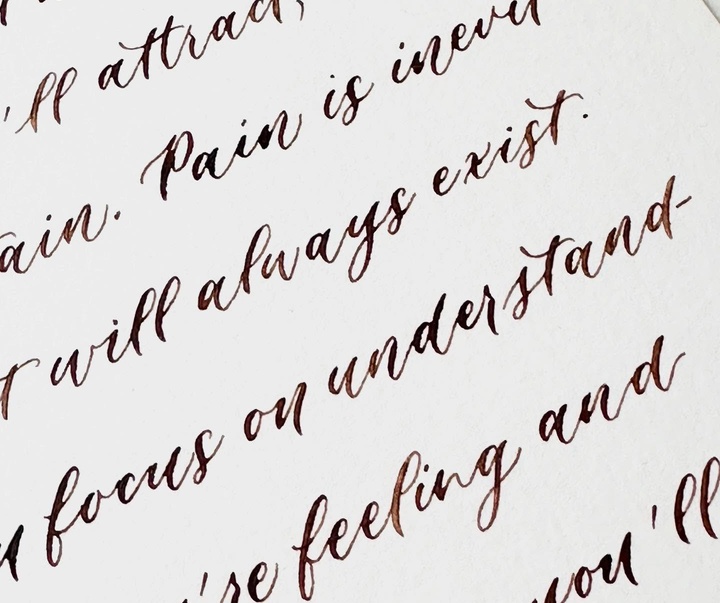 'll attract,
ain. Pain is inevit
t will always exist.
u focus on understand-
're feeling and
you'll